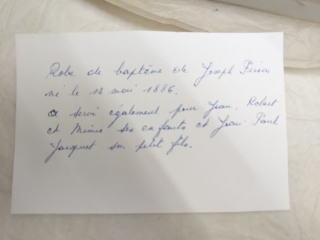 Robe de baptême de Joseph
né le 12 mai 1886.
a servi également pour Jean, Robert
et Mimie ses enfants et Jean Paul
Jacquot son petit fils.